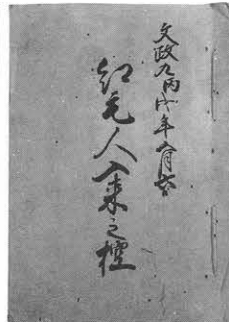 文政九丙戌年 月
紅毛人入来之控